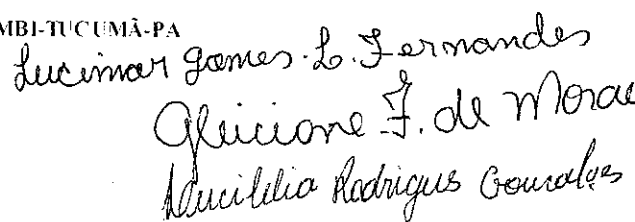 MBI-TUCUMÃ-PA
Lucimar Gomes. L. Fernandes
Gleicione F. de Morae
Rodrigus Goncalves